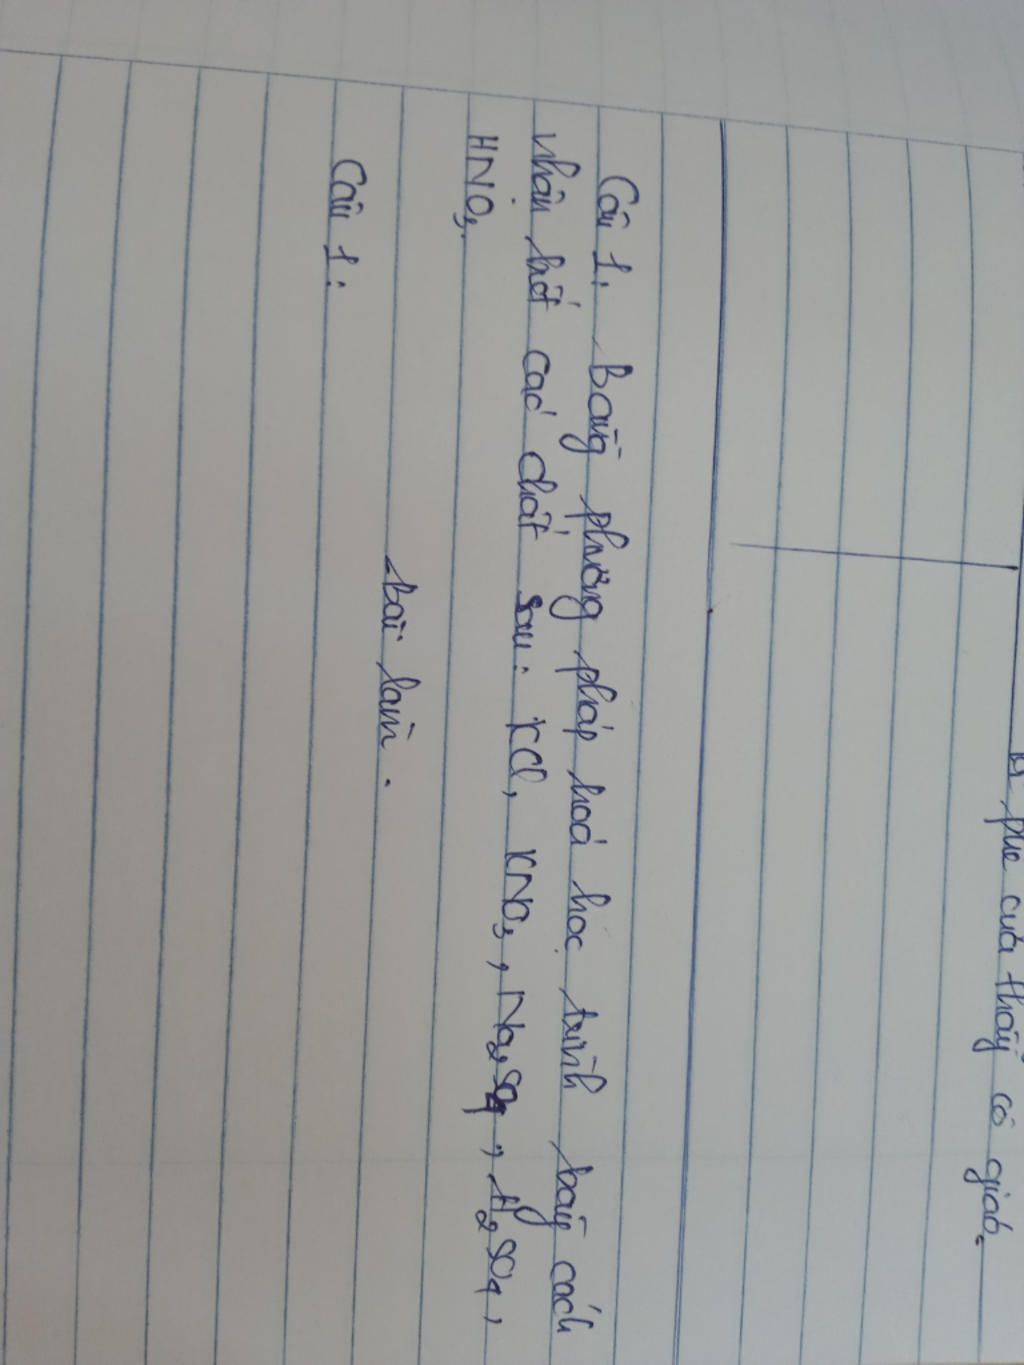 phê của thầy cô giáo.
Câu 1. Bằng phương pháp hoá học trình bày cách
nhận biết các chất sau: KCl, KNO3, Na2SO4, H2SO4,
HNO3.
Bài làm.
Câu 1: